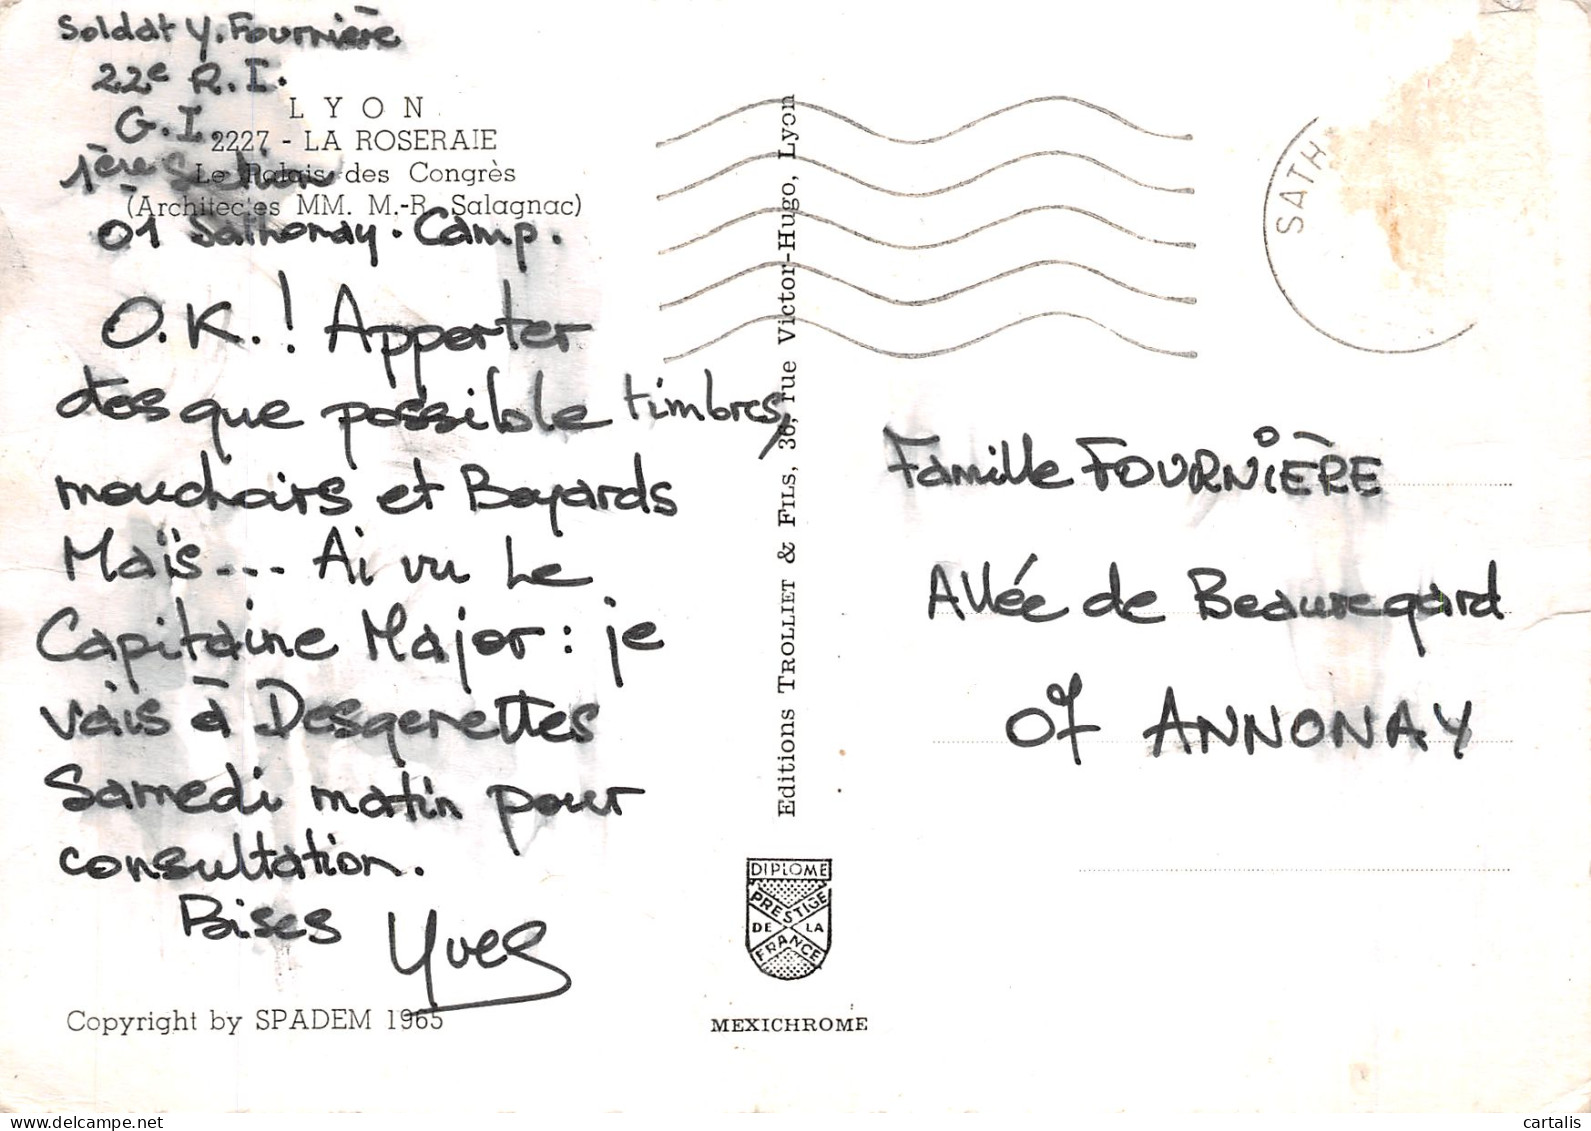 Soldat Y. Fournière
22e R.I.
G.I.
1ère Section
01 Sathonay-Camp.
LYON
2227 - LA ROSERAIE
Le Palais des Congrès
(Architectes MM. M.-R. Salagnac)
O.K.! Apporter
des que possible timbres,
mouchoirs et Boyards
Maïs... Ai vu le
Capitaine Major : je
vais à Desgenettes
Samedi matin pour
consultation.
Bises Yves
Copyright by SPADEM 1965
Editions TROLLIET & FILS, 36, rue Victor-Hugo, Lyon
DIPLOME
PRESTIGE
DE LA
FRANCE
MEXICHROME
SATH
Famille FOURNIÈRE
Allée de Beauregard
07 ANNONAY
cartalis